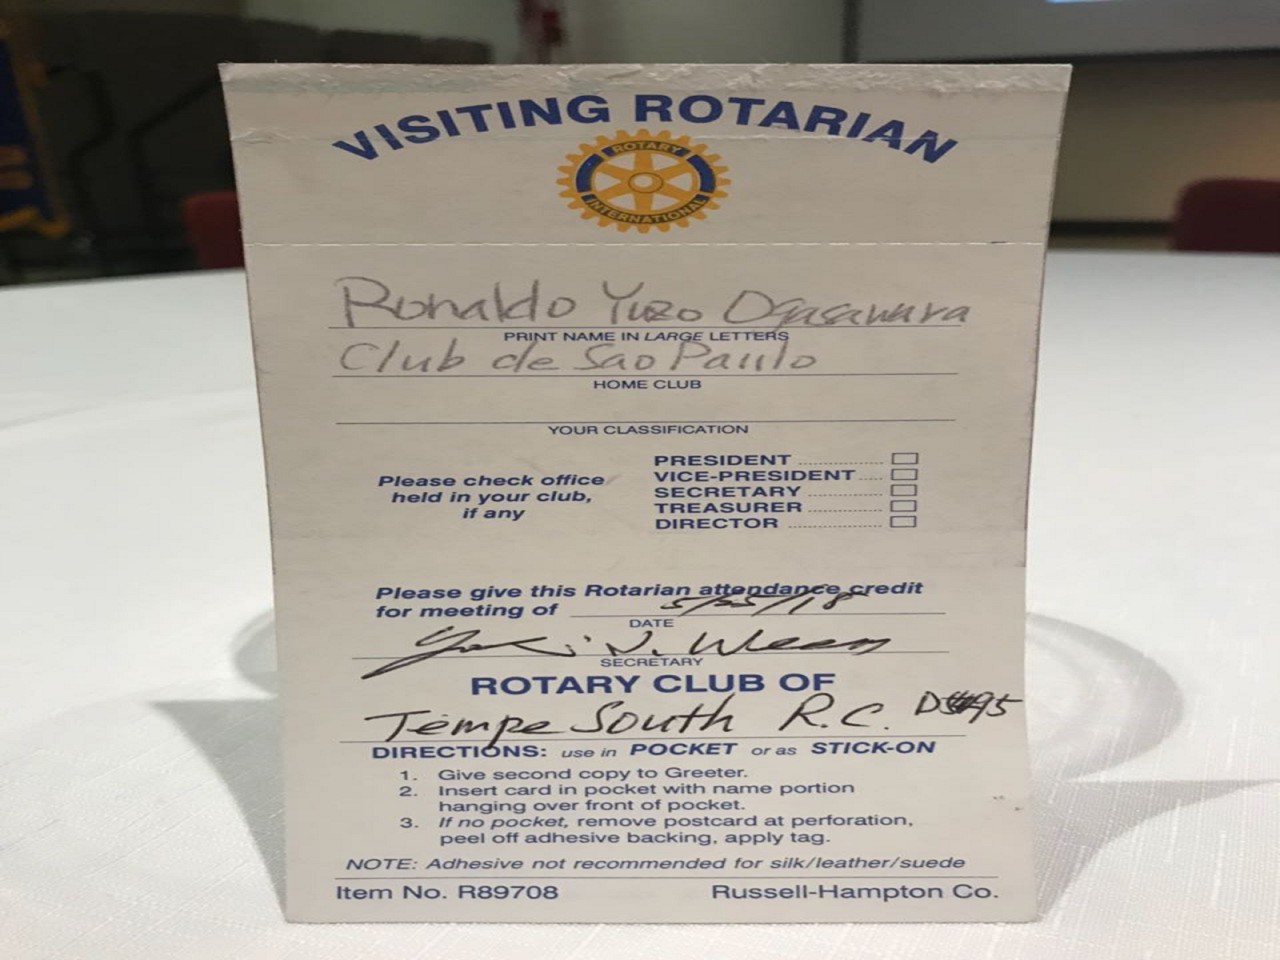 VISITING ROTARIAN
ROTARY
INTERNATIONAL
Ronaldo Yuzo Ogasawara
PRINT NAME IN LARGE LETTERS
Club de Sao Paulo
HOME CLUB
YOUR CLASSIFICATION
Please check office
held in your club,
if any
PRESIDENT
VICE-PRESIDENT
SECRETARY
TREASURER
DIRECTOR
Please give this Rotarian attendance credit
for meeting of 5/25/18
DATE
SECRETARY
ROTARY CLUB OF
Tempe South R.C.
DIRECTIONS: use in POCKET or as STICK-ON
1. Give second copy to Greeter.
2. Insert card in pocket with name portion
hanging over front of pocket.
3. If no pocket, remove postcard at perforation,
peel off adhesive backing, apply tag.
NOTE: Adhesive not recommended for silk/leather/suede
Item No. R89708 Russell-Hampton Co.